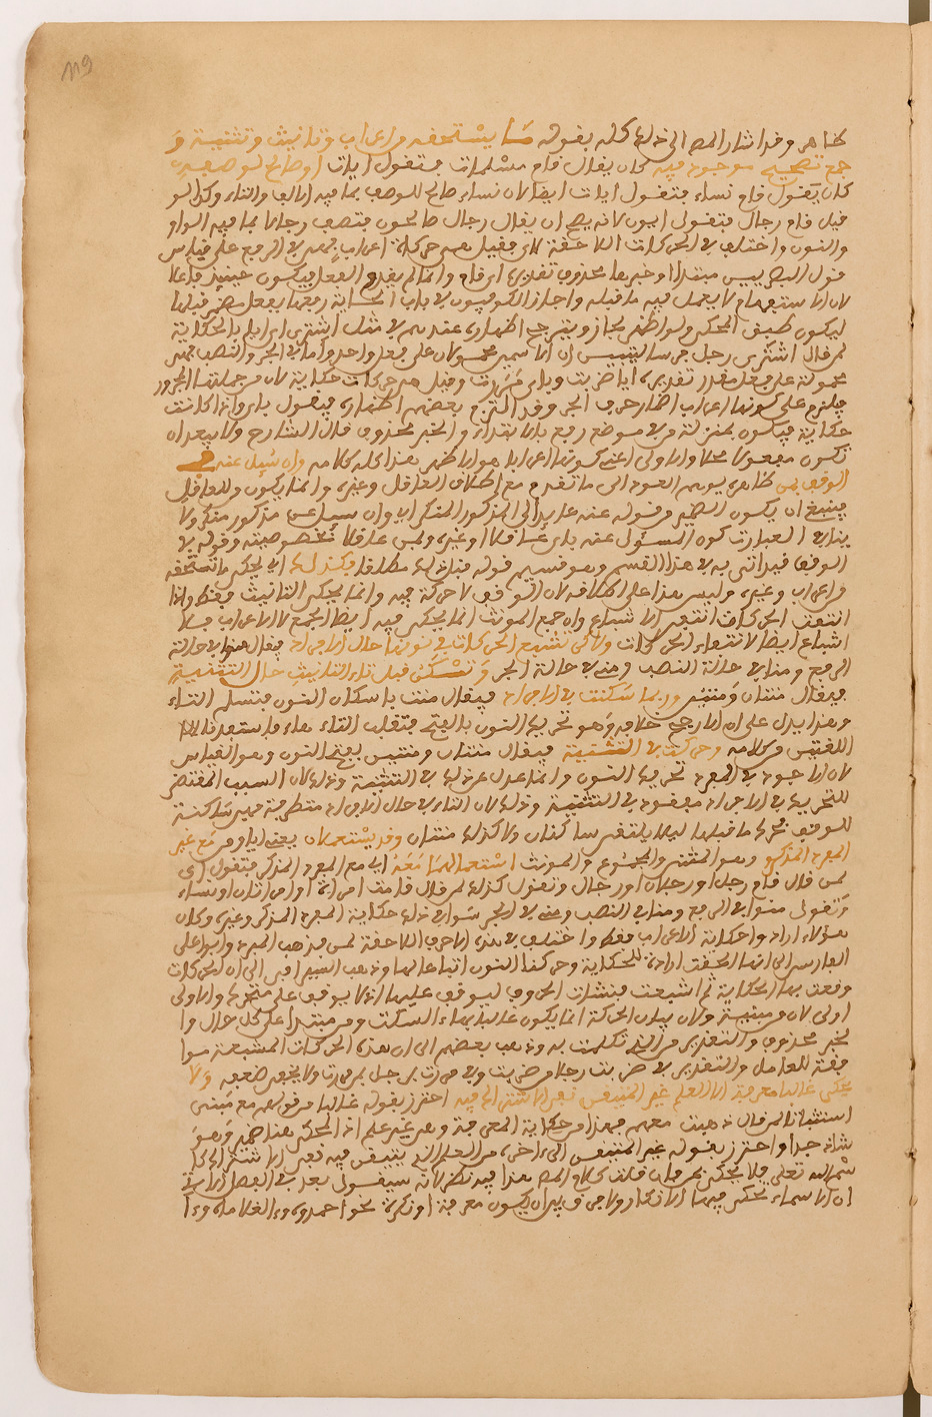 119
ظاهر وقد اشار المص الى ذلك كله بقوله ما يستحقه من اعراب وتانيث وتثنية و
جمع تصحيح موجود فيه كان يقال قام مسلمات فتقول ايات او صالح لوصفه
كان يقول قام نساء فتقول ايات ايضا لان نساء صالح للوصف بما فيه الالف والتاء وكذا لو
قيل قام رجال فتقول ايون لانه يصح ان يقال رجال صالحون فتصف رجالا بما فيه الواو
والنون واختلف في الحركات اللاحقة لاي فقيل هي حركات اعراب فهي في الرفع على قياس
قول البصريين مبتدا وخبرها محذوف تقديره اي قام وانما لم يقدم الفعل فيكون حينئذ فاعلا
لان الاستفهام لا يعمل فيه ما قبله واجاز الكوفيون في باب الحكاية رفعها بفعل مضمر قبلها
ليكون طبق المحكي ولو اظهر لجاز ويترجح اظهاره عندهم في مثل اشترى اي ايا بالحكاية
لمن قال اشترى رجل فرسا ليتبين ان الاسمين محمولان على فعل واحد واما في الجر والنصب فهي
محمولة على فعل مقدر تقديره ايا ضربت وباي مررت وقيل هي حركات حكاية لان من جملتها المجرور
فيلزم على كونها اعراب اضمار حرف الجر وقد التزم بعضهم اظهاره فيقول باي واذا كانت
حكاية فيكون بمنزلة من في موضع رفع بالابتداء والخبر محذوف قال الشارح ولا يبعد ان
تكون مفعولا محلا والاولى اعني كونها اعرابا هو الاظهر هذا كله كلامه وان سيل عنه في
الوقف بمن ظاهره يوهم العود الى ما تقدم مع اطلاق العاقل وغيره وانما يكون للعاقل
فينبغي ان يكون الضمير في قوله عنه عايد الى المذكور المنكر اي وان سيل عن مذكور منكر ولا
ينافي العبارة كون المسئول عنه باي عاقلا او غيره وبمن عاقلا لخصوصيته وقوله في
الوقف قيد اتى به في هذا القسم وهو قسيم قوله قبل ذلك مطلقا فكذلك اي يحكى ما تستحقه
من اعراب وغيره وليس هذا على اطلاقه لان الوقف لا حركة فيه وانما يحكى التانيث فقط واذا
انتفت الحركات انتفى الاشباع وان جمع المونث انما يحكى فيه ايضا الجمع لا الاعراب فلا
اشباع ايضا لانتفاء الحركات ولاكن تشبع الحركات في نونها حال الافراد فيقال منوا في حالة
الرفع ومنا في حالة النصب ومني في حالة الجر وتسكن قبل تاء التانيث حال التثنية
فيقال منتان ومنتين وربما سكنت في الافراد فيقال منت باسكان النون فتسلم التاء
وهذا يدل على ان الارجح خلافه وهو تحريك النون بالفتح فتقلب التاء هاء واستفدنا
اللغتين من كلامه وحركت في التثنية فيقال منتان ومنتين بفتح النون وهو القياس
لان الاجود في المفرد تحريك النون وانما عدل عن ذلك في التثنية وذلك لان السبب المقتضى
للتحريك في الافراد مفقود في التثنية وذلك لان التاء في حال الافراد متطرفة فهي ساكنة
للوقف فحرك ما قبلها ليلا يلتقي ساكنان ولا كذلك منتان وقد يستعملان يعني اي ومن مع غير
المفرد المذكر وهو المثنى والمجموع والمونث استعمالهما معه اي مع المفرد المذكر فتقول اي
لمن قال قام رجل او رجلان او رجال وتقول كذلك لمن قال قامت امراة او امراتان او نساء
وتقول منوا في الرفع ومنا في النصب ومني في الجر سوا في ذلك حكاية المفرد المذكر وغيره وكان
هؤلاء ارادوا حكاية الاعراب فقط واختلف في هذه الاحرف اللاحقة لمن فذهب المبرد وابو على
الفارسي الى انها الحقت ارادة للحكاية وحركنا النون اتباعا لها وذهب السيرافي الى ان الحركات
وقعت بها الحكاية ثم اشبعت فنشات الحروف ليوقف عليها اذ لا يوقف على متحرك والاولى
اولى لان من مبنية ولان بيان الحركة انما يكون غالبا بهاء السكت ومن مبتدا على كل حال وا
لخبر محذوف والتقدير من الذي تكلمت به وذهب بعضهم الى ان هذه الحركات المشبعة موا
فقة للعامل والتقدير في ضربت رجلا من ضربت وفي مررت برجل بمن مررت ولا يخفى ضعفه ولا
يحكى غالبا معرفة الا العلم غير المتيقن نفي الاشتراك فيه احترز بقوله غالبا من قولهم مع منين
استثباتا لمن قال ذهبت معهم فهذا من حكاية المعرفة وهي غير علم اذ المحكي هنا ضمير وهو
شاذ جدا واحترز بقوله غير المتيقن الى اخره من العلم الذي يتيقن فيه نفي الاشتراك كا
سم الله تعلى فلا يحكى بمن فان قلت كلام المص هذا فيه نظر لانه سيقول بعد في الفصل الاتي
ان الاسماء يحكى فيها الانكار ولا فرق بين ان يكون معرفة او نكرة نحو احمدوه والغلاموه وا